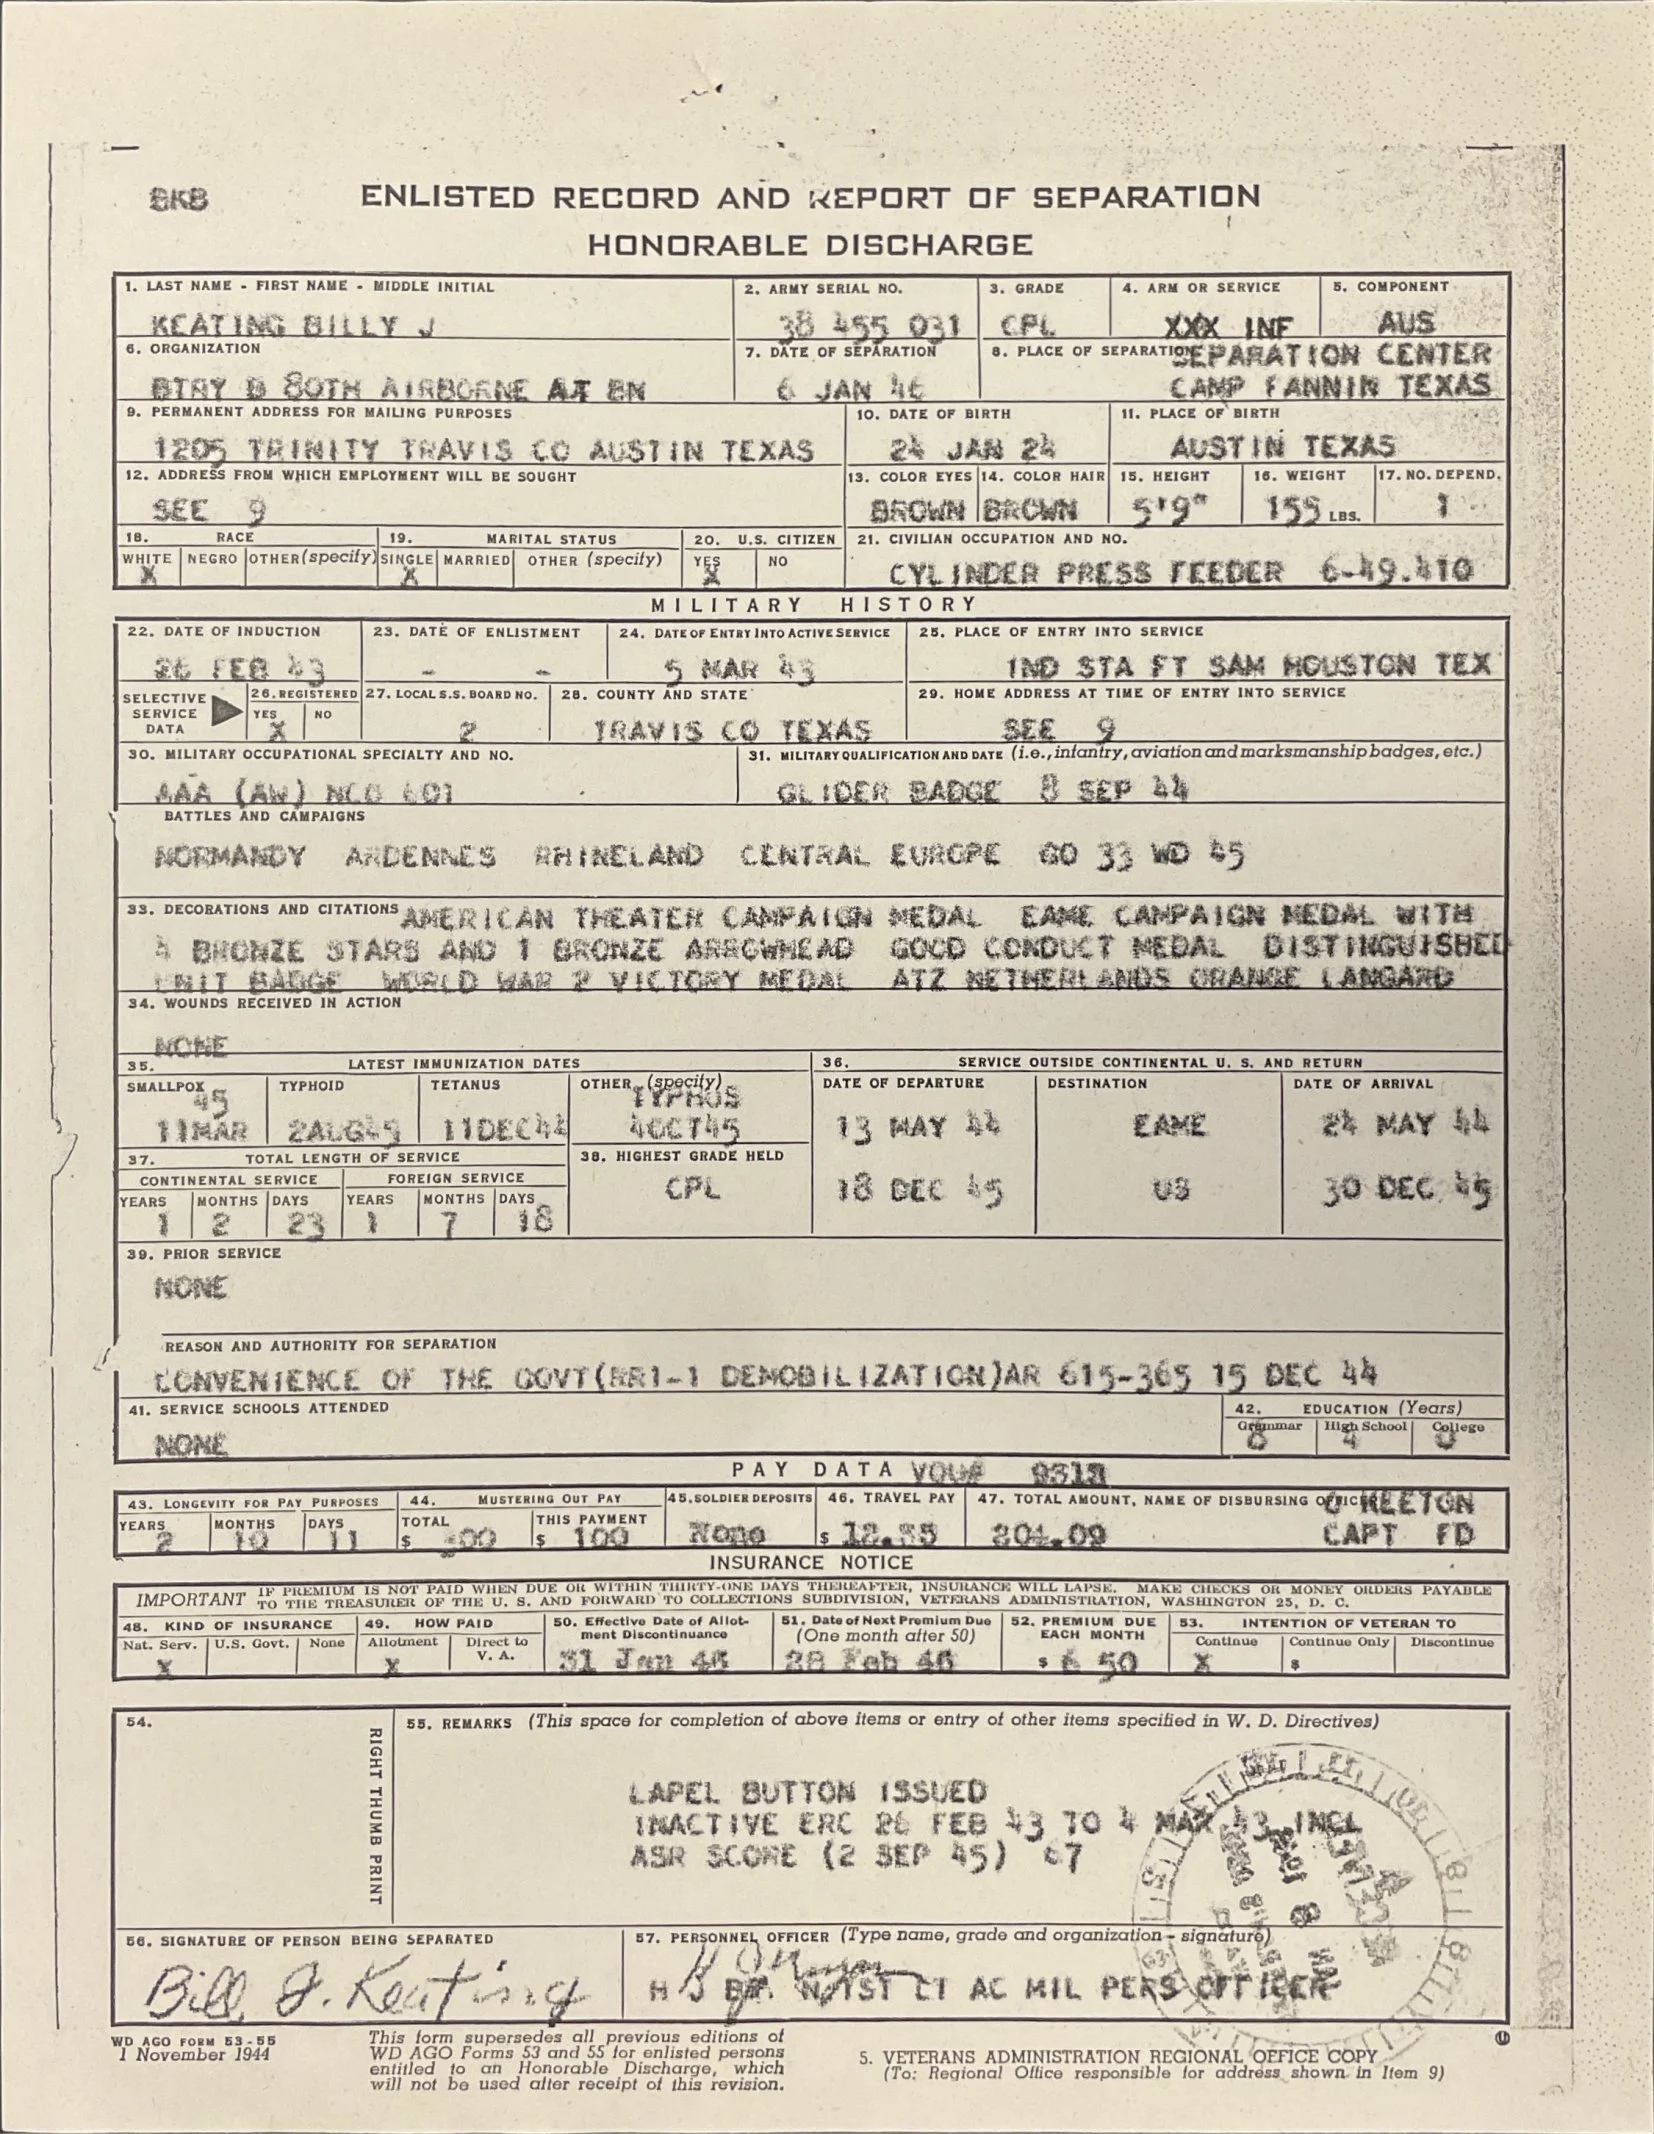 BKB
ENLISTED RECORD AND REPORT OF SEPARATION
HONORABLE DISCHARGE
1. LAST NAME - FIRST NAME - MIDDLE INITIAL 2. ARMY SERIAL NO. 3. GRADE 4. ARM OR SERVICE 5. COMPONENT
KEATING BILLY J 38 455 031 CPL XXX INF AUS
6. ORGANIZATION 7. DATE OF SEPARATION 8. PLACE OF SEPARATION SEPARATION CENTER
BTRY B 80TH AIRBORNE AA BN 6 JAN 46 CAMP FANNIN TEXAS
9. PERMANENT ADDRESS FOR MAILING PURPOSES 10. DATE OF BIRTH 11. PLACE OF BIRTH
1205 TRINITY TRAVIS CO AUSTIN TEXAS 24 JAN 24 AUSTIN TEXAS
12. ADDRESS FROM WHICH EMPLOYMENT WILL BE SOUGHT 13. COLOR EYES 14. COLOR HAIR 15. HEIGHT 16. WEIGHT 17. NO. DEPEND.
SEE 9 BROWN BROWN 5'9" 155 LBS. 1
18. RACE 19. MARITAL STATUS 20. U.S. CITIZEN 21. CIVILIAN OCCUPATION AND NO.
WHITE NEGRO OTHER (specify) SINGLE MARRIED OTHER (specify) YES NO
X X X CYLINDER PRESS FEEDER 6-49.410
MILITARY HISTORY
22. DATE OF INDUCTION 23. DATE OF ENLISTMENT 24. DATE OF ENTRY INTO ACTIVE SERVICE 25. PLACE OF ENTRY INTO SERVICE
26 FEB 43 - - 5 MAR 43 IND STA FT SAM HOUSTON TEX
SELECTIVE SERVICE DATA 26. REGISTERED 27. LOCAL S.S. BOARD NO. 28. COUNTY AND STATE 29. HOME ADDRESS AT TIME OF ENTRY INTO SERVICE
YES NO
X 2 TRAVIS CO TEXAS SEE 9
30. MILITARY OCCUPATIONAL SPECIALTY AND NO. 31. MILITARY QUALIFICATION AND DATE (i.e., infantry, aviation and marksmanship badges, etc.)
AAA (AW) NCO 601 GLIDER BADGE 8 SEP 44
BATTLES AND CAMPAIGNS
NORMANDY ARDENNES RHINELAND CENTRAL EUROPE GO 33 WD 45
33. DECORATIONS AND CITATIONS AMERICAN THEATER CAMPAIGN MEDAL EAME CAMPAIGN MEDAL WITH
4 BRONZE STARS AND 1 BRONZE ARROWHEAD GOOD CONDUCT MEDAL DISTINGUISHED
UNIT BADGE WORLD WAR 2 VICTORY MEDAL ATZ NETHERLANDS ORANGE LANGARD
34. WOUNDS RECEIVED IN ACTION
NONE
35. LATEST IMMUNIZATION DATES 36. SERVICE OUTSIDE CONTINENTAL U. S. AND RETURN
SMALLPOX TYPHOID TETANUS OTHER (specify) DATE OF DEPARTURE DESTINATION DATE OF ARRIVAL
45 TYPHUS
11MAR 2AUG45 11DEC44 4OCT45 13 MAY 44 EAME 24 MAY 44
37. TOTAL LENGTH OF SERVICE 38. HIGHEST GRADE HELD
CONTINENTAL SERVICE FOREIGN SERVICE
CPL 18 DEC 45 US 30 DEC 45
YEARS MONTHS DAYS YEARS MONTHS DAYS
1 2 23 1 7 18
39. PRIOR SERVICE
NONE
REASON AND AUTHORITY FOR SEPARATION
CONVENIENCE OF THE GOVT(RR1-1 DEMOBILIZATION)AR 615-365 15 DEC 44
41. SERVICE SCHOOLS ATTENDED 42. EDUCATION (Years)
Grammar High School College
NONE 8 4 0
PAY DATA VOU#
43. LONGEVITY FOR PAY PURPOSES 44. MUSTERING OUT PAY 45. SOLDIER DEPOSITS 46. TRAVEL PAY 47. TOTAL AMOUNT, NAME OF DISBURSING OFFICER KEETON
YEARS MONTHS DAYS TOTAL THIS PAYMENT
2 10 11 $ $ 100 None $ 204.09 CAPT FD
INSURANCE NOTICE
IMPORTANT IF PREMIUM IS NOT PAID WHEN DUE OR WITHIN THIRTY-ONE DAYS THEREAFTER, INSURANCE WILL LAPSE. MAKE CHECKS OR MONEY ORDERS PAYABLE
TO THE TREASURER OF THE U. S. AND FORWARD TO COLLECTIONS SUBDIVISION, VETERANS ADMINISTRATION, WASHINGTON 25, D. C.
48. KIND OF INSURANCE 49. HOW PAID 50. Effective Date of Allotment Discontinuance 51. Date of Next Premium Due (One month after 50) 52. PREMIUM DUE EACH MONTH 53. INTENTION OF VETERAN TO
Nat. Serv. U.S. Govt. None Allotment Direct to V. A. Continue Continue Only Discontinue
X X 31 Jan 46 28 Feb 46 $ 6 50 X $
54. RIGHT THUMB PRINT
55. REMARKS (This space for completion of above items or entry of other items specified in W. D. Directives)
LAPEL BUTTON ISSUED
INACTIVE ERC 26 FEB 43 TO 4 MAR 43 INCL
ASR SCORE (2 SEP 45) 67
56. SIGNATURE OF PERSON BEING SEPARATED 57. PERSONNEL OFFICER (Type name, grade and organization - signature)
Bill J. Keating 1ST LT AC MIL PERS OFFICER
WD AGO FORM 53-55
1 November 1944
This form supersedes all previous editions of
WD AGO Forms 53 and 55 for enlisted persons
entitled to an Honorable Discharge, which
will not be used after receipt of this revision.
5. VETERANS ADMINISTRATION REGIONAL OFFICE COPY
(To: Regional Office responsible for address shown in Item 9)